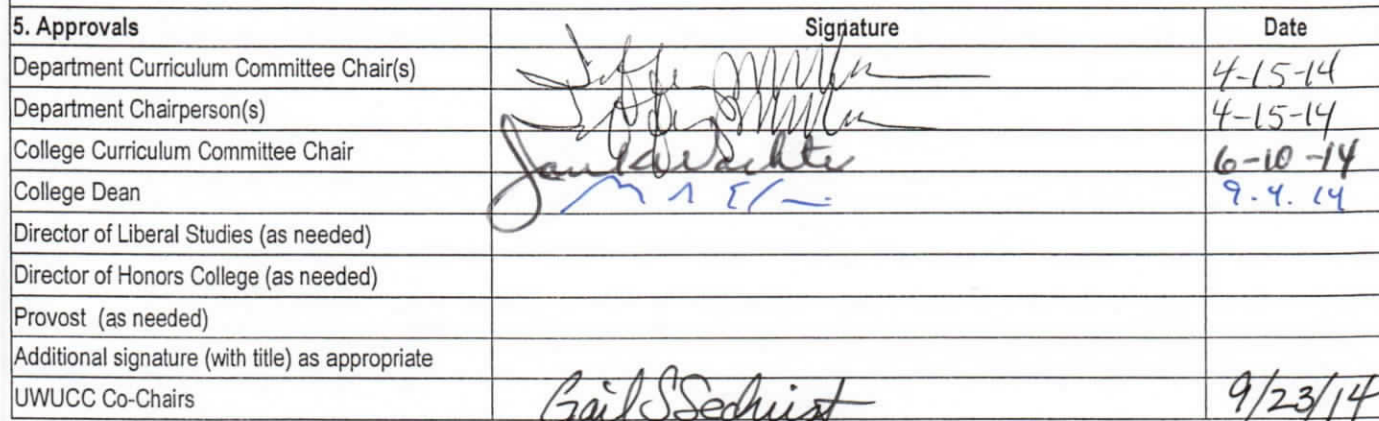 5. Approvals Signature Date
Department Curriculum Committee Chair(s) 4-15-14
Department Chairperson(s) 4-15-14
College Curriculum Committee Chair 6-10-14
College Dean 9.4.14
Director of Liberal Studies (as needed)
Director of Honors College (as needed)
Provost (as needed)
Additional signature (with title) as appropriate
UWUCC Co-Chairs Gail S Sechrist 9/23/14